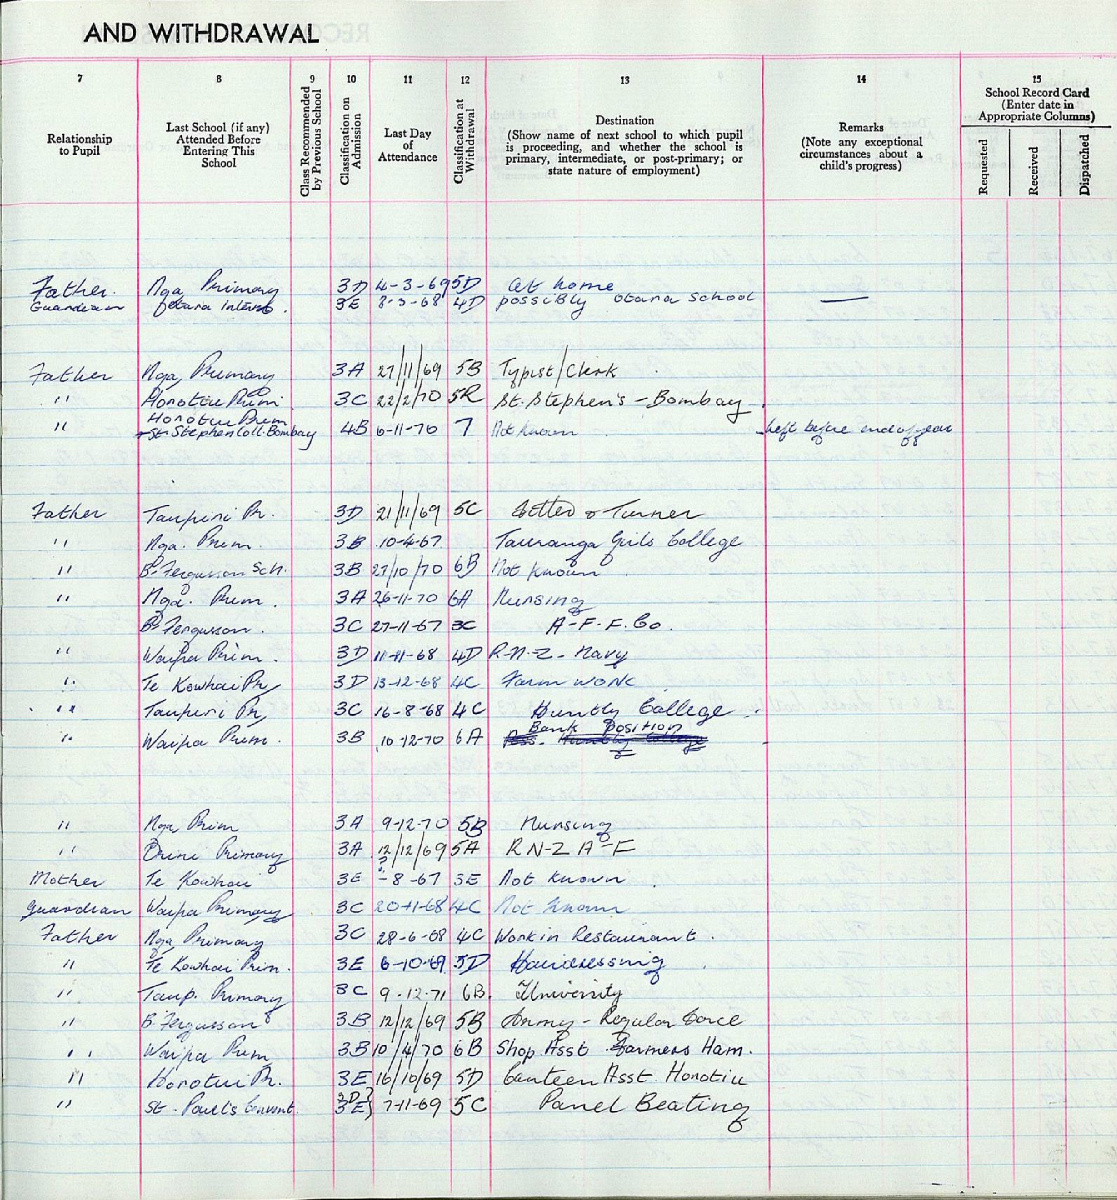 AND WITHDRAWAL
7 8 9 10 11 12 13 14 15
Relationship to Pupil
Last School (if any) Attended Before Entering This School
Class Recommended by Previous School
Classification on Admission
Last Day of Attendance
Classification at Withdrawal
Destination
(Show name of next school to which pupil is proceeding, and whether the school is primary, intermediate, or post-primary; or state nature of employment)
Remarks
(Note any exceptional circumstances about a child's progress)
School Record Card
(Enter date in Appropriate Columns)
Requested
Received
Dispatched
Father. Nga Primary 3D 4-3-69 5D at home
Guardian Otara Interm. 3E 8-3-68 4D possibly Otara School —
Father Nga Primary 3A 27/11/69 5B Typist/Clerk
" Horotiu Prim. 3C 22/2/70 5R St. Stephen's - Bombay.
" Horotiu Prim
+ St. Stephen Coll. Bombay 4B 6-11-70 7 Not known Left before end of year
Father Taupiri Pr. 3D 21/11/69 5C Fitter & Turner
" Nga. Prim. 3B 10-4-67 Tauranga Girls College
" B. Fergusson Sch. 3B 27/10/70 6B Not known
" Nga. Prim. 3A 26-11-70 6A Nursing
" B. Fergusson. 3C 27-11-67 3C A-F-F. Co.
" Waipa Prim. 3D 11-11-68 4D R-N-Z- Navy
" Te Kowhai Pr 3D 13-12-68 4C Farm work
" Taupiri Pr 3C 16-8-68 4C Huntly College.
" Waipa Prim. 3B 10-12-70 6A Bank Position
" Nga Prim 3A 9-12-70 5B Nursing
" Orini Primary 3A 12/12/69 5A R N-Z A-F
Mother Te Kowhai 3E ?-8-67 3E Not known.
Guardian Waipa Primary 3C 20-11-68 4C Not known
Father Nga Primary 3C 28-6-68 4C Work in Restaurant.
" Te Kowhai Prim. 3E 6-10-69 5D Hairdressing
" Taup. Primary 3C 9-12-71 6B. University
" B. Fergusson 3B 12/12/69 5B Army - Regular Force
" Waipa Prim 3B 10/4/70 6B Shop Asst Farmers Ham.
" Horotiu Pr. 3E 16/10/69 5D Canteen Asst Horotiu
" St. Paul's Convent. 3D 3E} 7-11-69 5C Panel Beating